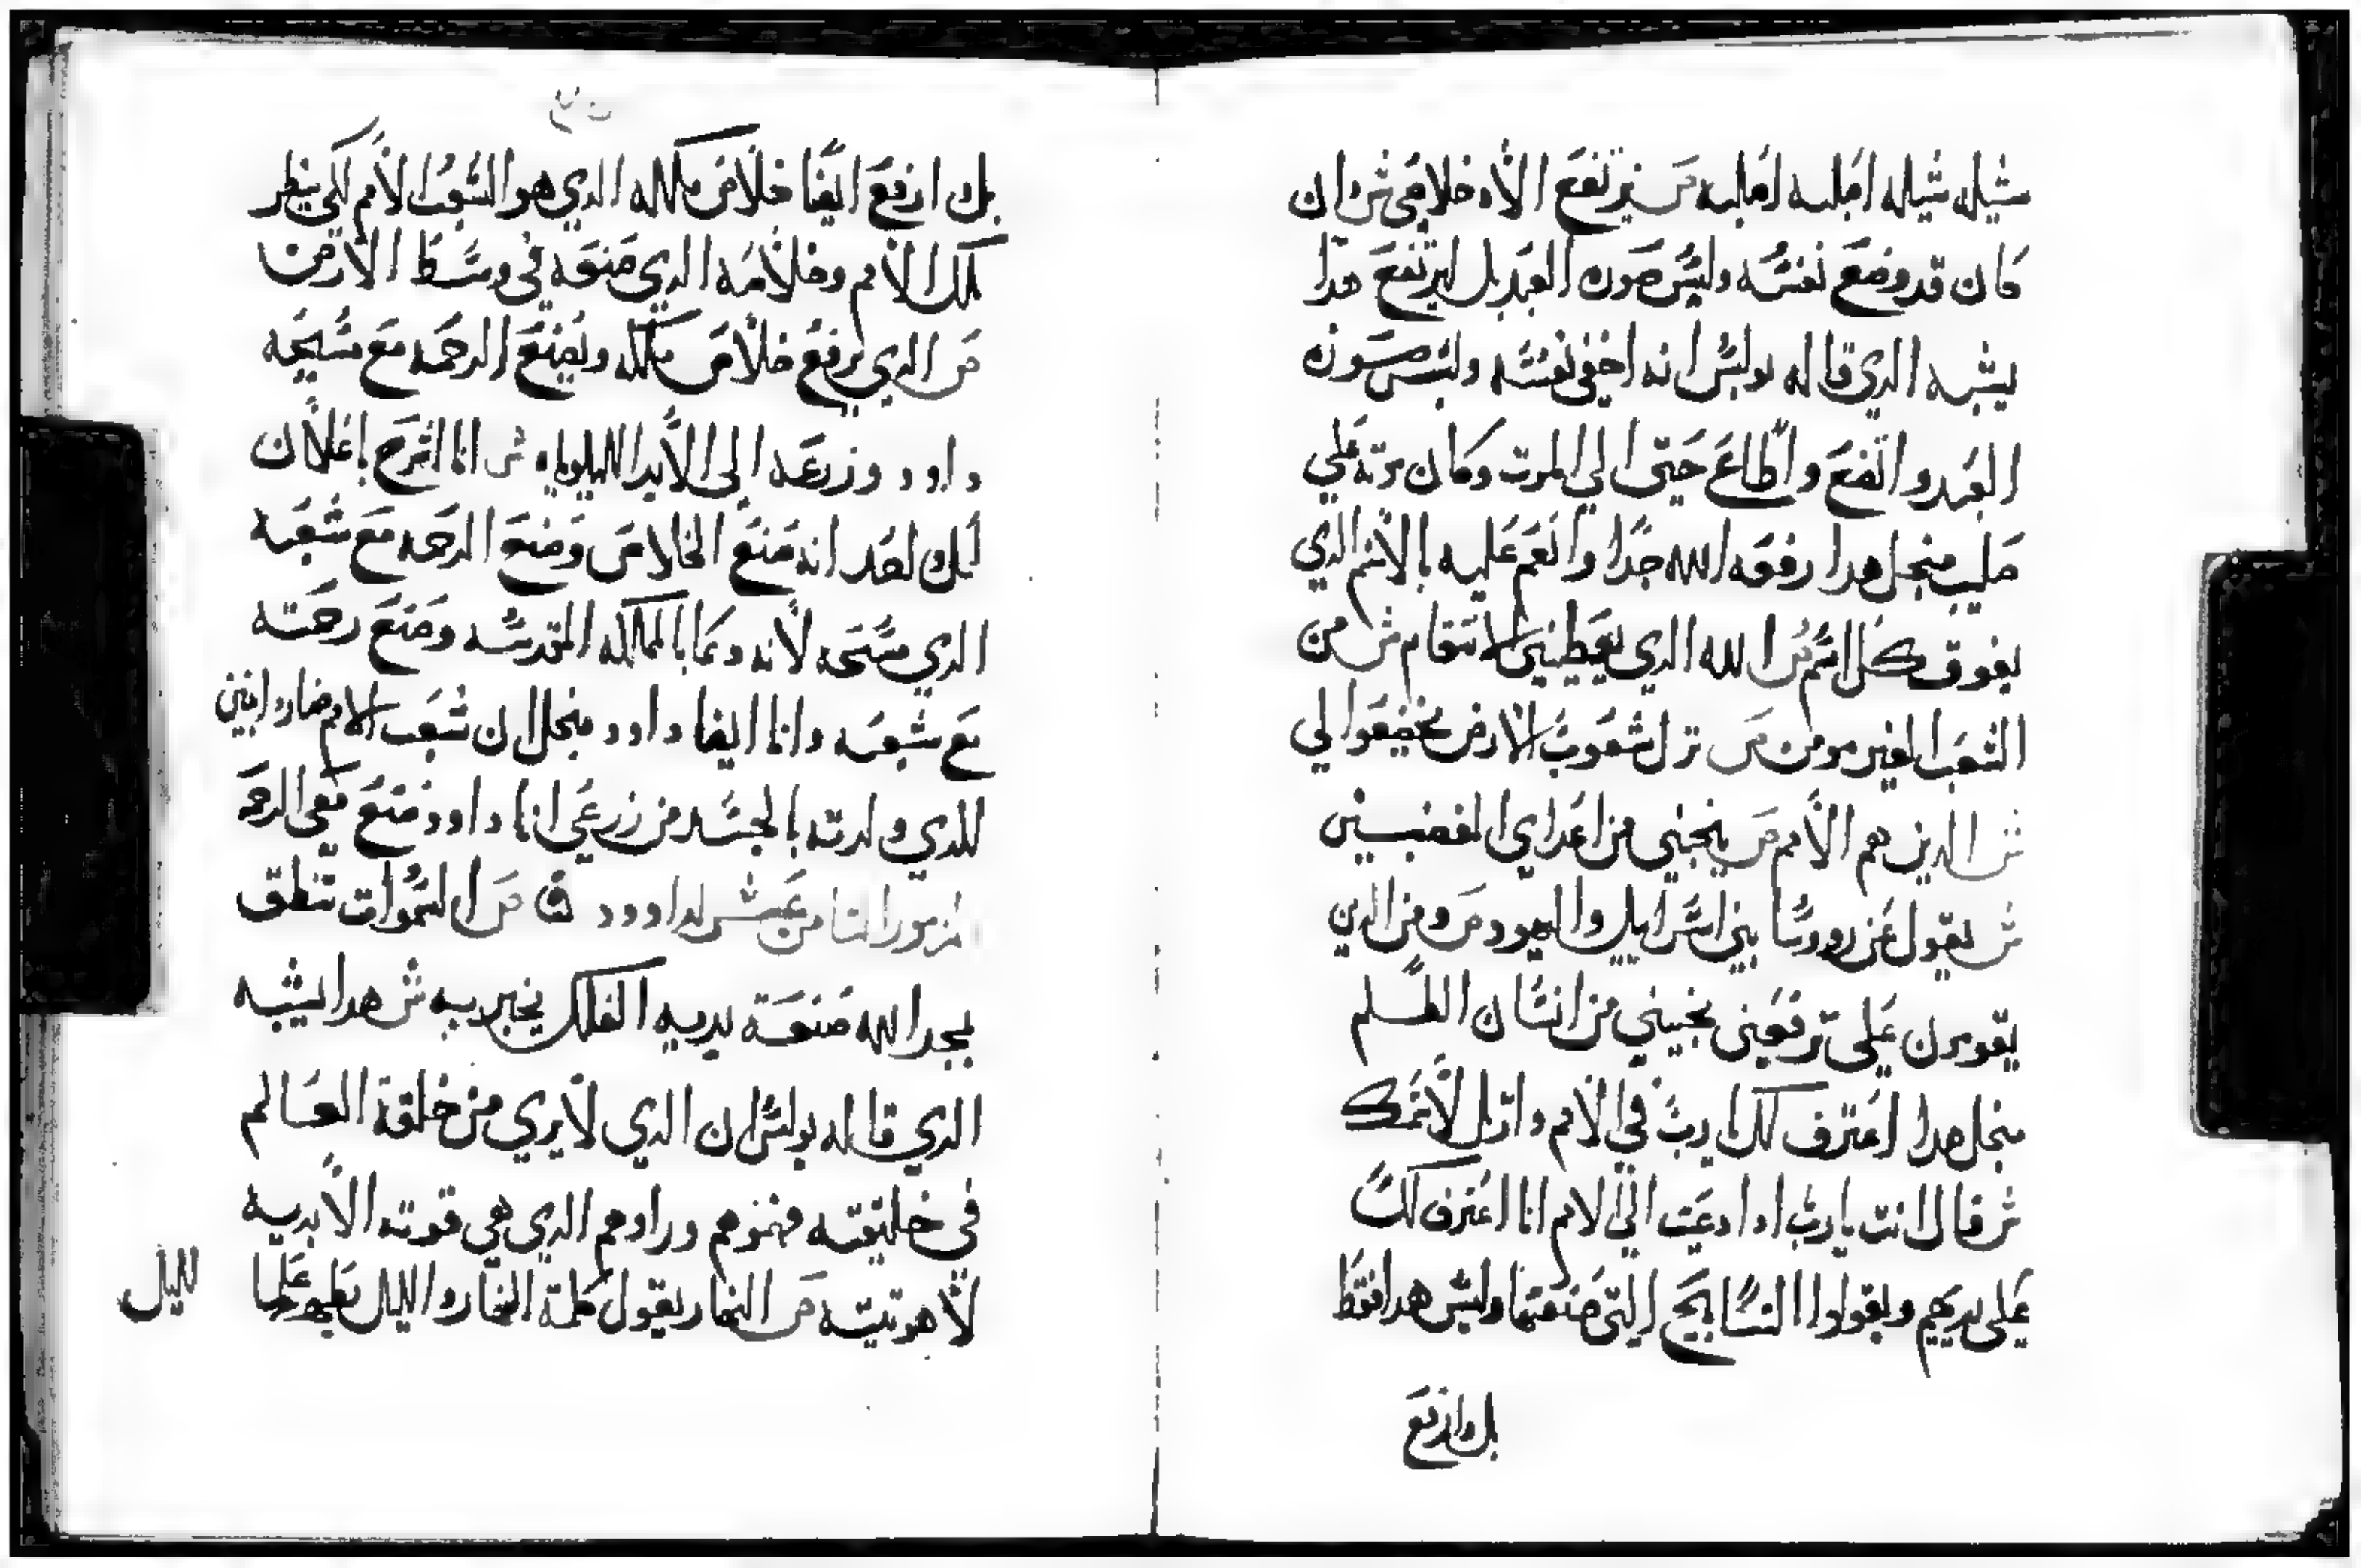 شيله شيله اصلبه اصلبه ص يرتفع الاه خلاصي ش وان
كان قد وضع نفسه ولبس صورة العبد بل ليرتفع هدا
يشبه الدي قاله بولس انه اخفي نفسه ولبس صورة
العبد واتضع واطاع حتي الي الموت وكان موته علي
صليب منجل هدا رفعه الله جدا وانعم عليه بالاسم الدي
يفوق كل اسم ص الله الدي يعطيني الانتقام ش من
الشعب الغير مومن ص تزل شعوب الارض يخضعوا لي
ش الدين هم الامم ص ينجني من اعداي الغضبين
ش يقول عن روسا بني اسراييل واليهود ص ومن الدين
يقومون علي ترفعني نجيني من انسان الظلم
منجل هدا اعترف لك يارب في الامم وارتل لاسمك
ش قال انت يارب ادا دعيت الي الامم انا اعترف لك
علي يديهم ويقولوا التسابيح التي صنعتها وليس هدا فقط
بل وارفع
بل ارفع ايضا خلاص مملكه الدي هو الشعب الامم لكي ينظر
ملك الامم وخلاصه الدي صنعه في وسط الارض
ص الدي يرفع خلاص ملكه ويصنع الرحمه مع مسيحه
داود وزرعه الي الابد الليلويا. ش انا اشرح باعلان
لك لعد انه صنع الخلاص وصنع الرحمه مع شعبه
الدي مسحه لانه دعا بالمملكه المقدسه وصنع رحمته
مع شعبه وانا ايضا داود منجل ان شعب الامم صاروا بنين
للدي ولدته بالجسد من زرعي انا داود صنع معي الرحمه
المزمور الثامن عشر لداوود ق ص السموات تنطق
بمجد الله صنعة يديه الفلك يخبر به ش هدا يشبه
الدي قاله بولس ان الدي لا يري من خلقة العالم
في خليقته فهموهم وراوهم الدي هي قوته الابديه
لاهوتيته ص النهار يقول كلمة النهار والليل يظهر علما
لليل